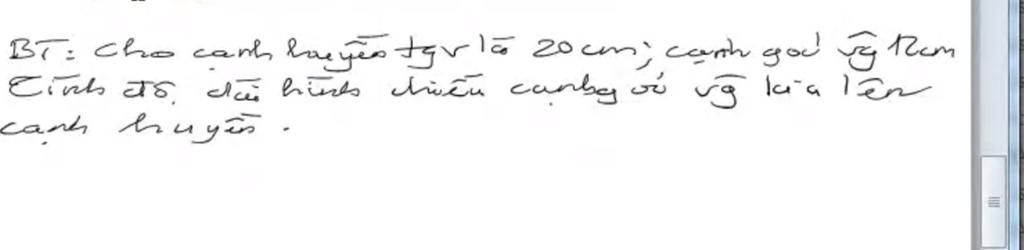 BT: Cho cạnh huyền tgv là 20 cm; cạnh góc vg 12cm
Tính độ dài hình chiếu cạnh góc vg kia lên
cạnh huyền.